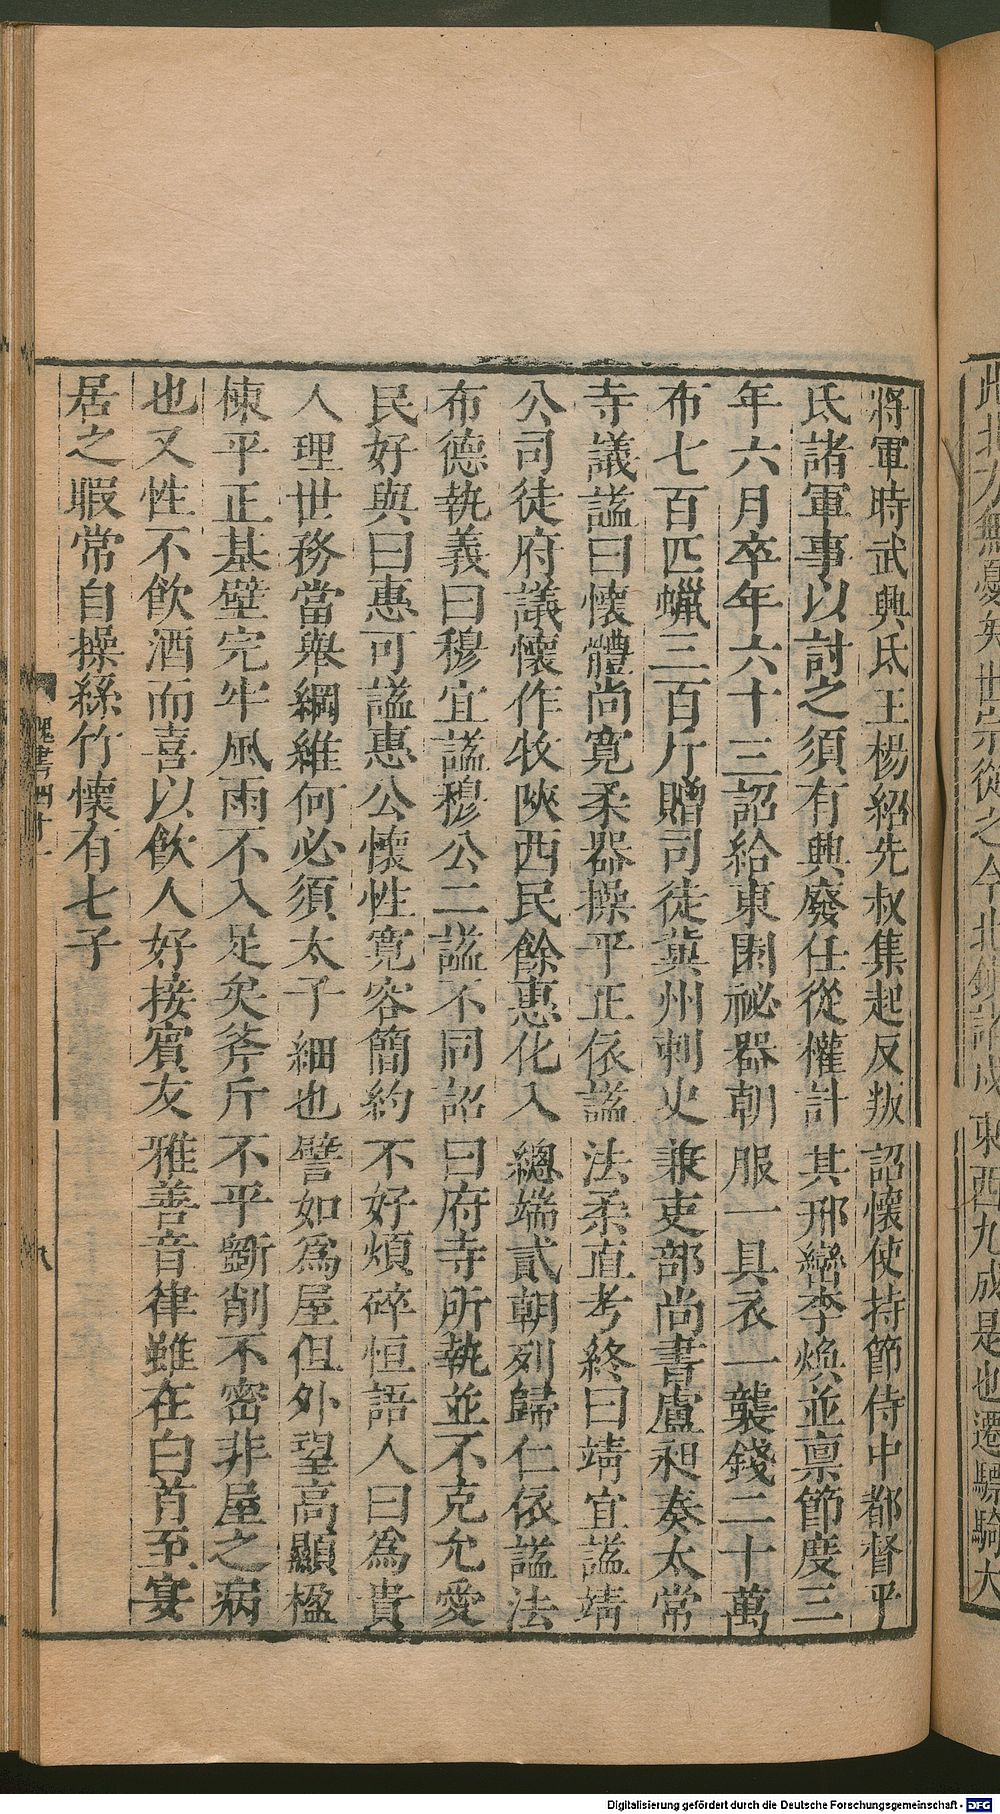 將軍時武興氐王楊紹先叔集起反叛詔懷使持節侍中都督平
氐諸軍事以討之須有興廢任從權計其邢巒李煥並禀節度三
年六月卒年六十三詔給東園祕器朝服一具衣一襲錢二十萬
布七百匹蠟三百斤贈司徒冀州刺史兼吏部尚書盧昶奏太常
寺議謚曰懷體尚寬柔器操平正依謚法柔直考終曰靖宜謚靖
公司徒府議懷作牧陝西民餘惠化入總端貳朝列歸仁依謚法
布德執義曰穆宜謚穆公二謚不同詔曰府寺所執並不克允愛
民好與曰惠可謚惠公懷性寬容簡約不好煩碎恒語人曰爲貴
人理世務當舉綱維何必須太子細也譬如爲屋但外望高顯楹
棟平正基壁完牢風雨不入足矣斧斤不平斲削不密非屋之病
也又性不飲酒而喜以飲人好接賓友雅善音律雖在白首至宴
居之暇常自操絲竹懷有七子
魏書四十一
九
東西九成是也遷驃騎大
Digitalisierung gefördert durch die Deutsche Forschungsgemeinschaft - DFG